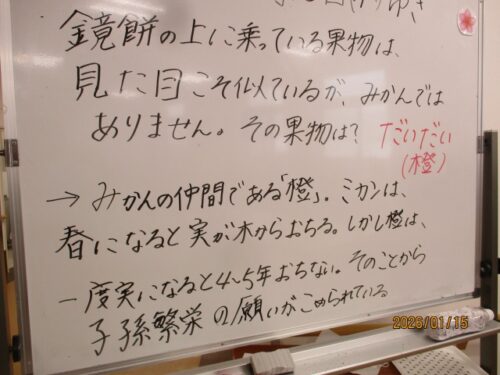 鏡餅の上に乗っている果物は、
見た目こそ似ているが、みかんでは
ありません。その果物は? だいだい
(橙)
→ みかんの仲間である「橙」。ミカンは、
春になると実が木からおちる。しかし橙は、
一度実になると4~5年おちない。そのことから
子孫繁栄の願いがこめられている
2026/01/15